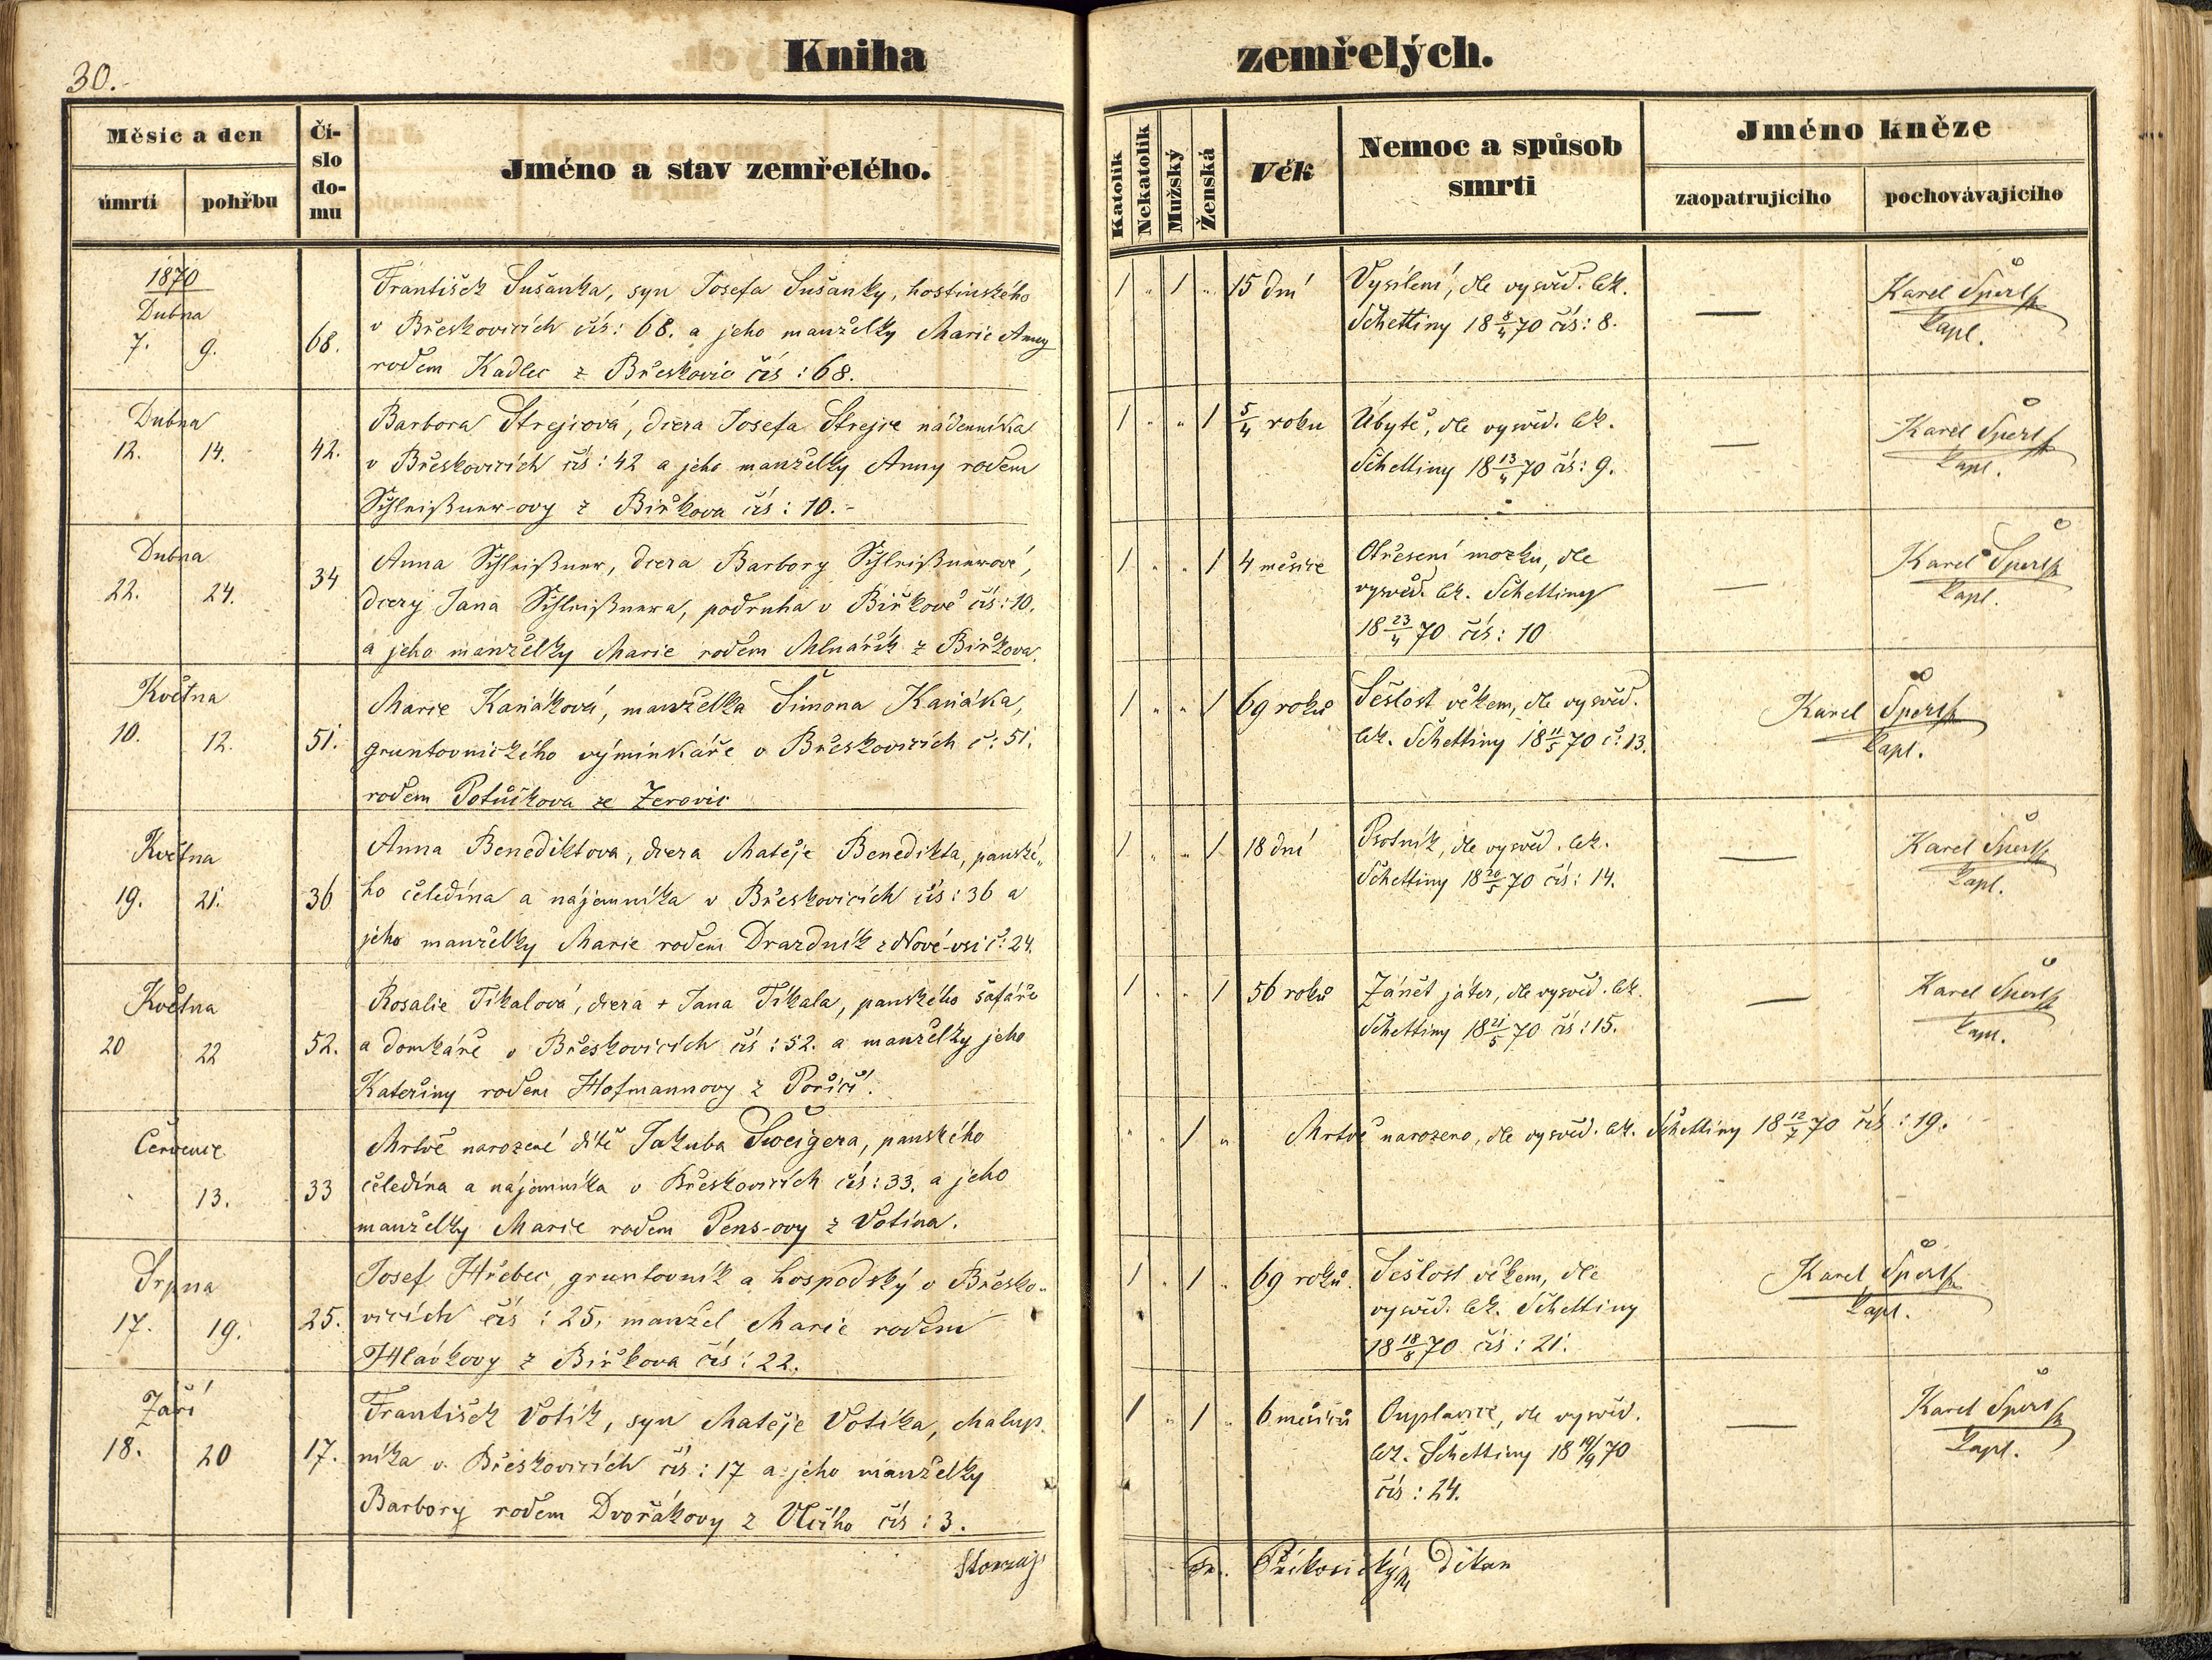 30.
Kniha zemřelých.
Měsíc a den
úmrtí
pohřbu
Čí-
slo
do-
mu
Jméno a stav zemřelého.
Katolík
Nekatolík
Mužský
Ženská
Věk
Nemoc a spůsob
smrti
Jméno kněze
zaopatrujícího
pochovávajícího
1870
Dubna
7. 9. 68.
František Sušanka, syn Josefa Sušanky, hostinského
v Břeskovicích čís: 68. a jeho manželky Marie Anny
rodem Kadlec z Břeskovic čís: 68.
1 „ 1 „ 15 dní
Vysílení, dle vysvěd. lék.
Schettiny 18 8/4 70 čís: 8.
—
Karel Špert
kapl.
Dubna
12. 14. 42.
Barbora Strejcová, dcera Josefa Strejce nádenníka
v Břeskovicích čís: 42 a jeho manželky Anny rodem
Schleißner-ovy z Biřkova čís: 10.-
1 „ „ 1 5/4 roku
Úbytě, dle vysvěd. lék.
Schettiny 18 13/4 70 čís: 9.
—
Karel Špert
kapl.
Dubna
22. 24. 34
Anna Schleißner, dcera Barbory Schleißnerové,
dcery Jana Schleißnera, podruha v Biřkově čís: 10.
a jeho manželky Marie rodem Mlnařík z Biřkova.
1 „ „ 1 4 měsíce
Otřesení mozku, dle
vysvěd. lék. Schettiny
18 23/4 70 čís: 10
—
Karel Špert
kapl.
Května
10. 12. 51.
Marie Kaňáková, manželka Šimona Kaňáka,
gruntovnického výminkáře v Břeskovicích č: 51.
rodem Potůčkova ze Zerovic
1 „ „ 1 69 roků
Sešlost věkem, dle vysvěd.
lék. Schettiny 18 11/5 70 č: 13.
Karel Špert
kapl.
Května
19. 21. 36
Anna Benediktova, dcera Matěje Benedikta, panské„
ho čeledína a nájemníka v Břeskovicích čís: 36 a
jeho manželky Marie rodem Drazdník z Nové-vsi č: 24.
1 „ „ 1 18 dní
Psotník, dle vysvěd. lék.
Schettiny 18 20/5 70 čís: 14.
—
Karel Špert
kapl.
Května
20 22 52.
Rosalie Tikalová, dcera + Jana Tikala, panského šafáře
a domkáře v Břeskovicích čís: 52. a manželky jeho
Kateřiny rodem Hofmannovy z Poříčí.
1 „ „ 1 56 roků
Zánět jater, dle vysvěd. lék.
Schettiny 18 21/5 70 čís: 15.
—
Karel Špert
kapl.
Července
13. 33
Mrtvě narozené dítě Jakuba Šweigera, panského
čeledína a nájemníka v Břeskovicích čís: 33. a jeho
manželky Marie rodem Pens-ovy z Votína.
„ „ 1 „ Mrtvě narozeno, dle vysvěd. lék. Schettiny 18 12/7 70 čís: 19.
Srpna
17. 19. 25.
Josef Hřebec, gruntovník a hospodský v Břesko-
vicích čís: 25, manžel Marie rodem
Hlavkovy z Biřkova čís: 22.
1 „ 1 „ 69 roků.
Sešlost věkem, dle
vysvěd. lék. Schettiny
18 18/8 70 čís: 21.
Karel Špert
kapl.
Září
18. 20 17.
František Votík, syn Matěje Votíka, chalup.
níka v Břeskovicích čís: 17 a jeho manželky
Barbory rodem Dvořákovy z Vlčího čís: 3.
1 „ 1 „ 6 měsíců
Ouplavice, dle vysvěd.
lék. Schettiny 18 19/9 70
čís: 24.
—
Karel Špert
kapl.